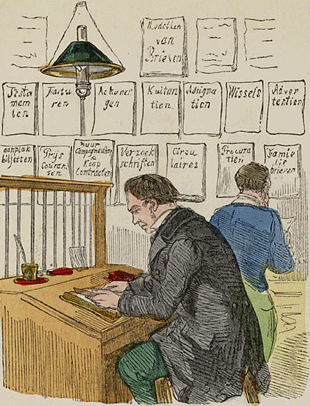 Modellen
van
Brieven
Testa
men
ten
Factu
ren
gen
Kuitan
tien.
Adsigna
tien
Wissels
Adver
tentien
aanplak
biljetten
Prijs
Couran
ten
Huur
&
Koop
Contracten
Verzoek
schriften
Circu
laires
Procura
tien
Famie
lie
brieven